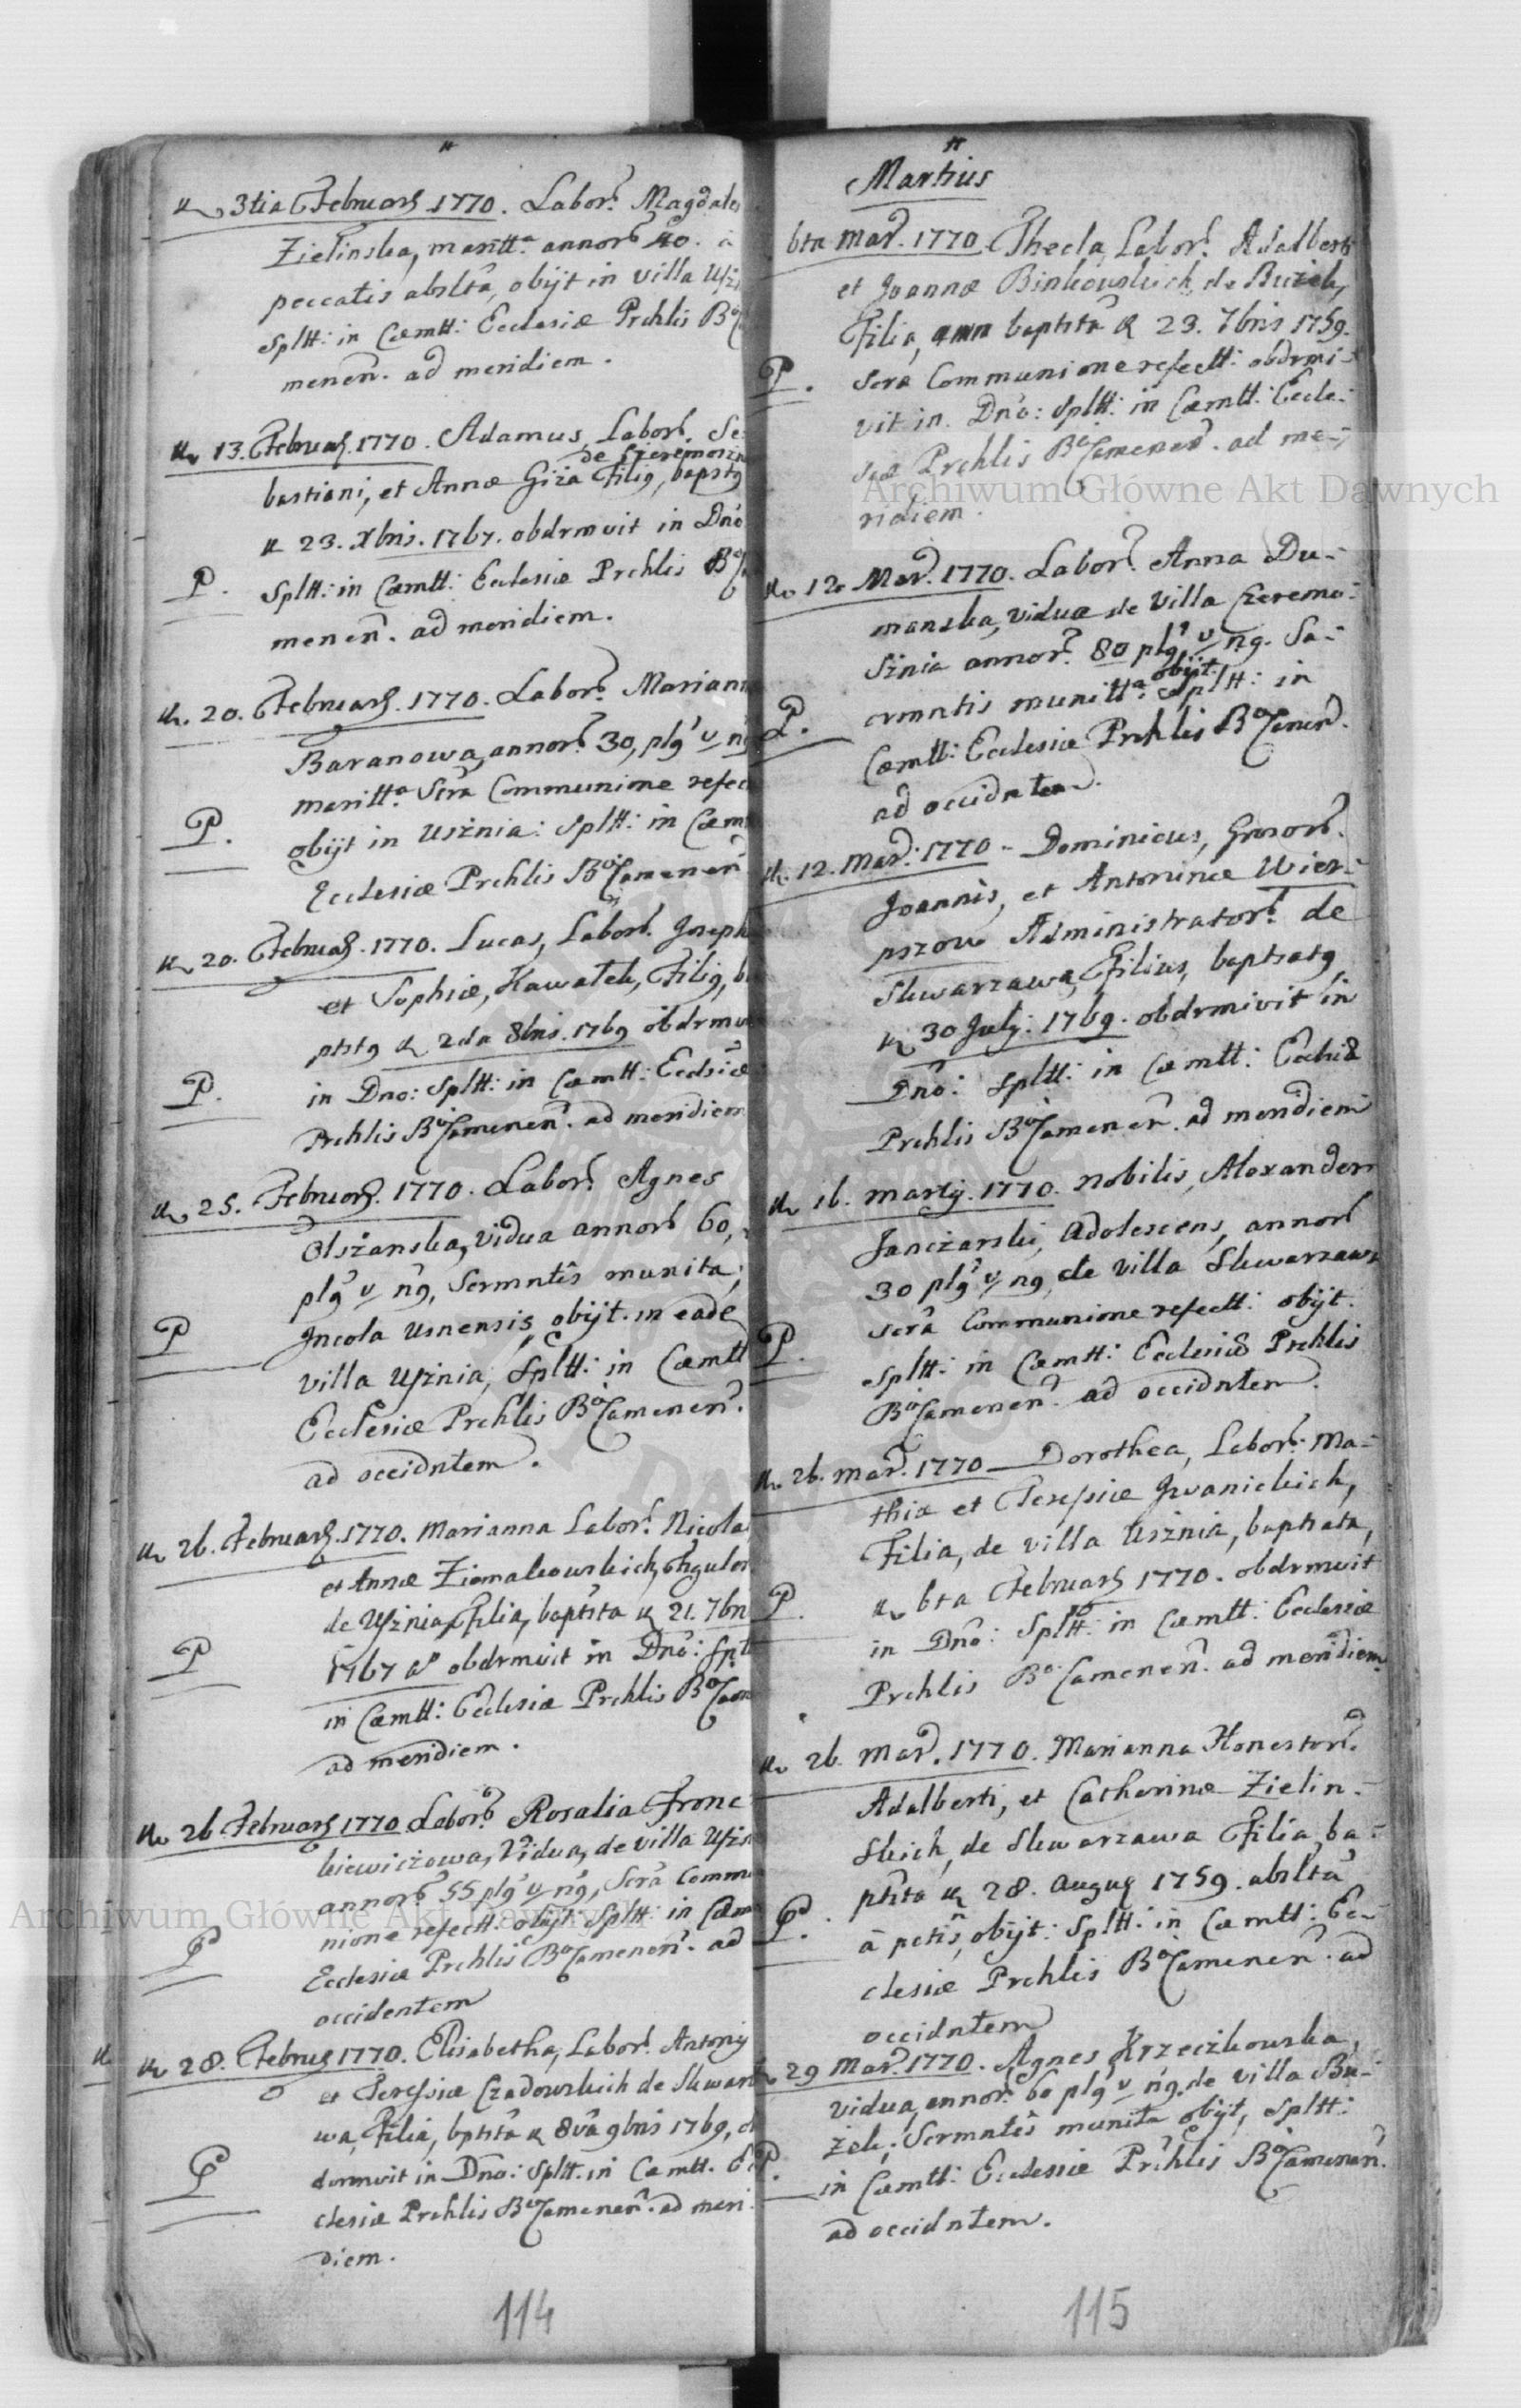 3tia Februarÿ 1770. Labor. Magdale
Zielinska, maritta annor 40. a
peccatis abslta, obijt in villa Uſz
Spltt: in Cæmtt: Ecclesiæ Prchlis
menen. ad meridiem.
13. Februar. 1770. Adamus, Labor. Se
de Czeremoszn
bastiani, et Annæ Giża Filig, bapstg
23. Xbris. 1767. obdrmvit in Dno
P.
Spltt: in Cæmtt: Ecclesiæ Prchlis
menen. ad meridiem.
20. Februarÿ. 1770. Labor. Mariann
Baranowa, annor. 30, plg v ng
maritta Scra Communione refec
P.
obijt in Usznia: Spltt: in Cæm
Ecclesiæ Prchlis Bo Camenen
20. Februar. 1770. Lucas, Labor. Joseph
et Sophiæ, Kawałek, Filig, b
ptstg 2da 8bris. 1769 obdrmv
P.
in Dno: Spltt: in Cæmtt: Ecclsiæ
Prchlis Bo Camenen. ad meridiem
25. Februar. 1770. Labor. Agnes
Olszanska, vidua annor 60,
plg v ng, Scrmntis munita,
P
Incola Usnensis obijt. in eade
villa Uſznia, Spltt: in Cæmtt
Ecclesiæ Prchlis Bo Camenen.
ad occidntem.
26. Februarÿ. 1770. Marianna Labor. Nicola
et Annæ Ziomalkowskich, figulor
de Uſznia, Filia, baptsta 21. 7br
P
1767 a obdrmvit in Dno: Splt
in Cæmtt: Ecclesiæ Prchlis Bo Cam
ad meridiem.
26 Februarÿ 1770 Labor Rosalia Fronc
kiewiczowa, Vidua, de villa Uſzn
annor 55 plg v ng, Scra Commu
nione refectt: obijt: Spltt: in Cæm
P
Ecclesiæ Prchlis Bo Camenen. ad
occidentem
28. Februa 1770. Elisabetha, Labor. Antonij
et Teresſiæ Czadowskich de Skwarz
wa, Filia, bptsta 8va 9bris 1769, o
P
dormvit in Dno: Spltt. in Cæmtt. Ec
clesiæ Prchlis Bo Camenen. ad meri
diem.
114
Martius
6ta Mar. 1770 Thecla, Labor. Adalberti
et Joannæ Binkowskich, de Bużek,
Filia, baptsta 23. 7bris 1759.
P.
Scra Communione refectt: obdrmi-
vit in Dno: Spltt: in Cæmtt: Eccle-
siæ Prchlis Bo Camenen. ad me-
ridiem.
12 Mar. 1770. Labor. Anna Du-
manska, vidua de Villa Czeremo-
sznia annor. 80 plg v ng. Sa-
obijt
crmntis munitta Spltt: in
P.
Cæmtt: Ecclesiæ Prchlis Bo Cenen.
ad occidntem.
12. Mar. 1770 - Dominicus, Gnosor.
Joannis, et Antoninæ Wier-
pszow Administrator. de
Skwarzawa, Filius, baptsatg
30 July. 1769. obdrmivit in
Dno: Spltt: in Cæmtt: Ecclsiæ
Prchlis Bo Camenen. ad meridiem
16. Martij. 1770. Nobilis, Alexander
Janczarski, Adolescens, annor
30 plg v ng, de villa Skwarzawa
Scra Communione refectt: obijt.
P.
Spltt: in Cæmtt: Ecclesiæ Prchlis
Bo Camenen. ad occidntem.
26. Mar. 1770 Dorothea, Labor. Ma-
thiæ et Teresſiæ Iwanickich,
Filia, de villa Usznia, baptsata,
P.
6ta Februarÿ 1770. obdrmvit
in Dno: Spltt: in Cæmtt: Ecclesiæ
Prchlis Bo Camenen. ad meridiem.
26 Mar. 1770. Marianna Honestor.
Adalberti, et Catharinæ Zielin-
skich, de Skwarzawa Filia, ba-
ptsta 28. Augu 1759. abslta
P.
à pctis, obijt: Spltt: in Cæmtt: Ec-
clesiæ Prchlis Bo Camenen. ad
occidntem
29 Mar. 1770. Agnes Krzeczkowska,
vidua, annor. 60 plg v ng. de villa Bu-
żek; Scrmntis munita obijt, Spltt:
P.
in Cæmtt: Ecclesiæ Prchlis Bo Camenen.
ad occidntem.
115
Archiwum Główne Akt Dawnych
Archiwum Główne Akt Dawnych